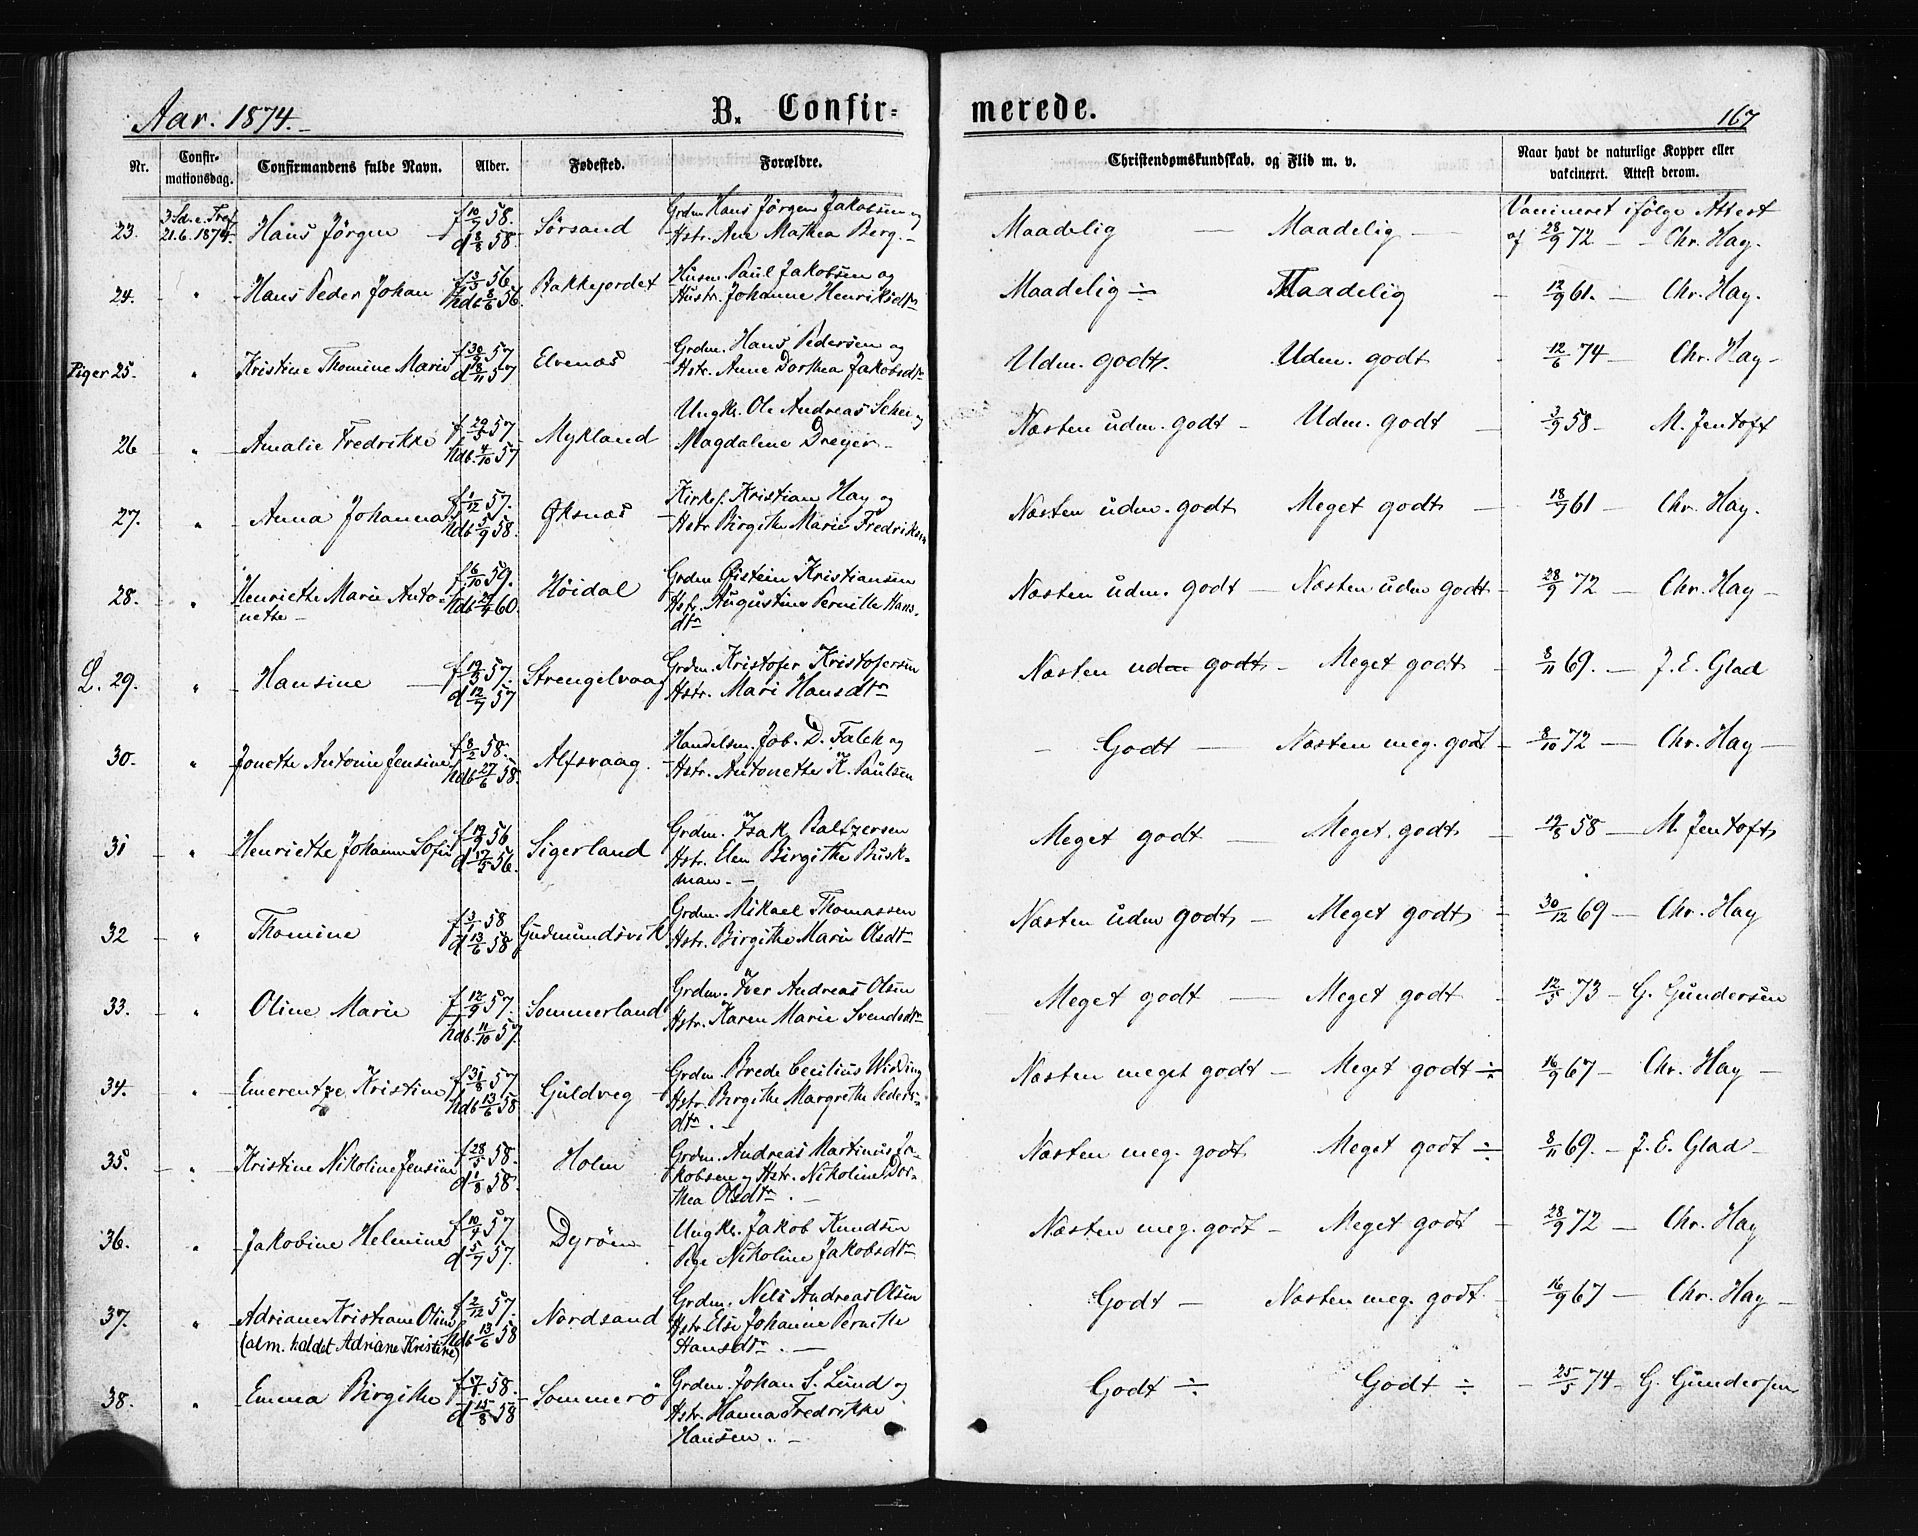 Aar. 1874.
B. Confir-
merede.
167
Nr.
Confir-
mationsdag.
Confirmandens fulde Navn.
Alder.
Fødested.
Forældre.
Christendomskundskab. og Flid m. v.
Naar havt de naturlige Kopper eller
vakcineret. Attest derom.
3 Sd. e. Tref. f 10/7 58. Grdm Hans Jörgen Jakobsen og Vaccineret ifølge Attest
23. 21.6.1874. Hans Jörgen d 8/8 58. Sörsand Hstr. Ane Mathea Berg. Maadelig — Maadelig — af 28/9 72 — Chr. Hay.
f 3/3 56 Husm. Paul Jakobsen og
24. " Hans Peder Johan hdb 8/6 56. Bakkejordet Hustr. Johanne Henriksdtr Maadelig ÷ Maadelig - 12/9 61. — Chr. Hay.
f 30/9 57 Grdm. Hans Pedersen og
Piger 25. " Kristine Thomine Marie d 18/11 57 Elvenæs Hstr. Anne Dorthea Jakobsdtr Udm. godt. Udm. godt 12/6 74 — Chr. Hay —
f 29/5 57 Ungk. Ole Andreas Schei og
26 " Amalie Fredrikke hdb. 4/10 57 Mykland Magdalene Dreyer — Næsten udm. godt - Udm. godt - 3/9 58 - M. Jentoft
f 1/12 57. Kirkes. Kristian Hay og
27. " Anna Johanna hdb 5/9 58. Øksnæs Hstr Birgithe Marie Fredriksen Næsten udm. godt Meget godt — 18/9 61 — Chr. Hay.
f 6/10 59. Grdm Øistein Kristiansen
28. " Henriette Marie Anto- hdb 29/4 60. Höidal Hstr. Augustine Pernille Hans- Næsten udm. godt — Næsten udm godt - 28/9 72 — Chr. Hay —
nette — dtr
f 19/3 57. Grdm. Kristofer Kristofersen
L. 29. " Hansine d 12/7 57 Strengelvaag Hstr. Mari Hansdtr Næsten udm godt - Meget godt - 8/11 69. — J. E. Glad
f 8/2 58. Handelsm. Job. D. Falch og
30. " Jonette Antonie Jensine hdb 27/6 58. Alfsvaag. Hstr. Antonette K. Paulsen - Godt — Næsten meg. godt - 8/10 72 — Chr. Hay —
f 19/3 56 Grdm. Isak Baltzersen
31 " Henriette Johanne Sofie d 17/5 56. Sigerland Hstr. Elen Birgithe Busk- Meget godt — Meget godt - 19/8 58 — M. Jentoft
man. —
f 3/1 58 Grdm. Mikael Thomassen
32 " Thomine d 13/6 58 Gudmundsvik Hstr. Birgithe Marie Olsdtr Næsten udm godt — Meget godt - 30/12 69 — Chr. Hay
f 12/9 57. Grdm. Iver Andreas Olsen
33. " Oline Marie hdb. 11/10 57. Sommerland Hstr. Karen Marie Svendsdtr Meget godt — Meget godt - 12/5 73 — G. Gundersen
f 31/8 57. Grdm. Brede Cecilius Widding
34. " Emerentze Kristine hdb 13/6 58 Guldveg Hstr. Birgithe Margrethe Peders- Næsten meget godt — Meget godt ÷ 16/9 67 — Chr. Hay —
dtr. —
f 28/5 58. Grdm. Andreas Martinus Ja-
35. " Kristine Nikoline Jensine d 1/8 58. Holm kobsen og Hstr. Nikoline Dor- Næsten meg. godt Meget godt ÷ 8/11 69. — J. E. Glad —
thea Olsdtr. —
f 10/4 57 Ungk. Jakob Knudsen
36. " Jakobine Helmine d 5/7 57. Dyröen Pige Nikoline Jakobsdtr Næsten meg. godt — Meget godt - 28/9 72 — Chr. Hay
f 2/12 57. Grdm. Nils Andreas Olsen
37. " Adriane Kristiane Oline hdb 13/6 58 Nordsand Hstr. Else Johanne Pernille Godt — Næsten meg. godt - 16/9 67 — Chr. Hay —
(alm. kaldet Adriane Kristine) Hansdtr. —
f 17/1 58. Grdm. Johan S. Lund og
38. " Emma Birgithe d 15/8 58 Sommerö Hstr. Hanna Fredrikke Godt ÷ Godt ÷ - 25/5 74 — G. Gundersen
Hansen. —